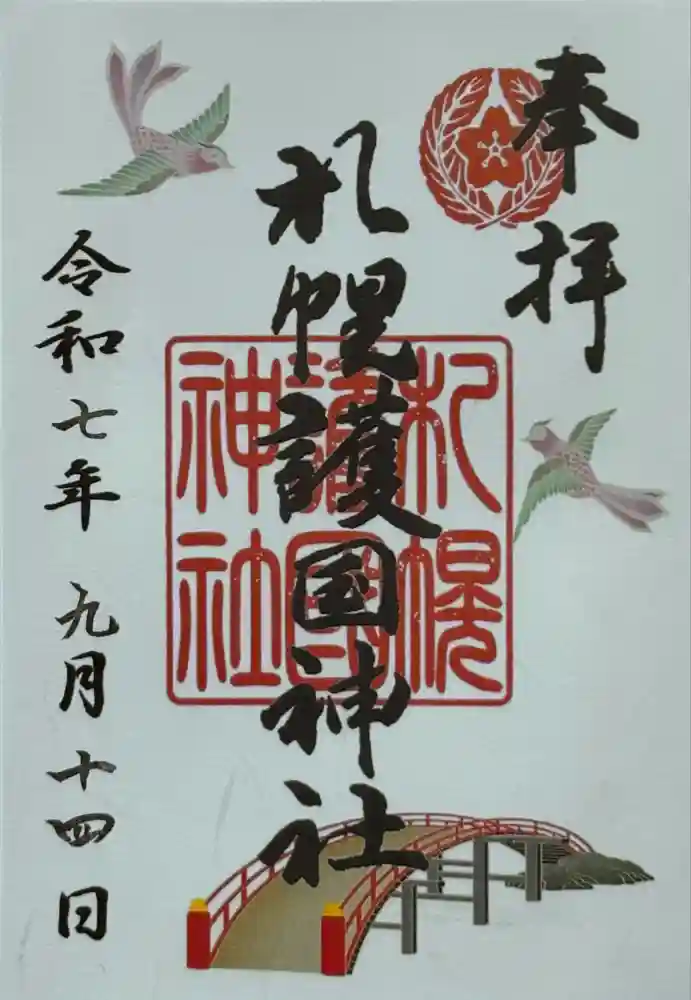 奉拝
札幌護国神社
札幌
護國
神社
令和七年 九月十四日